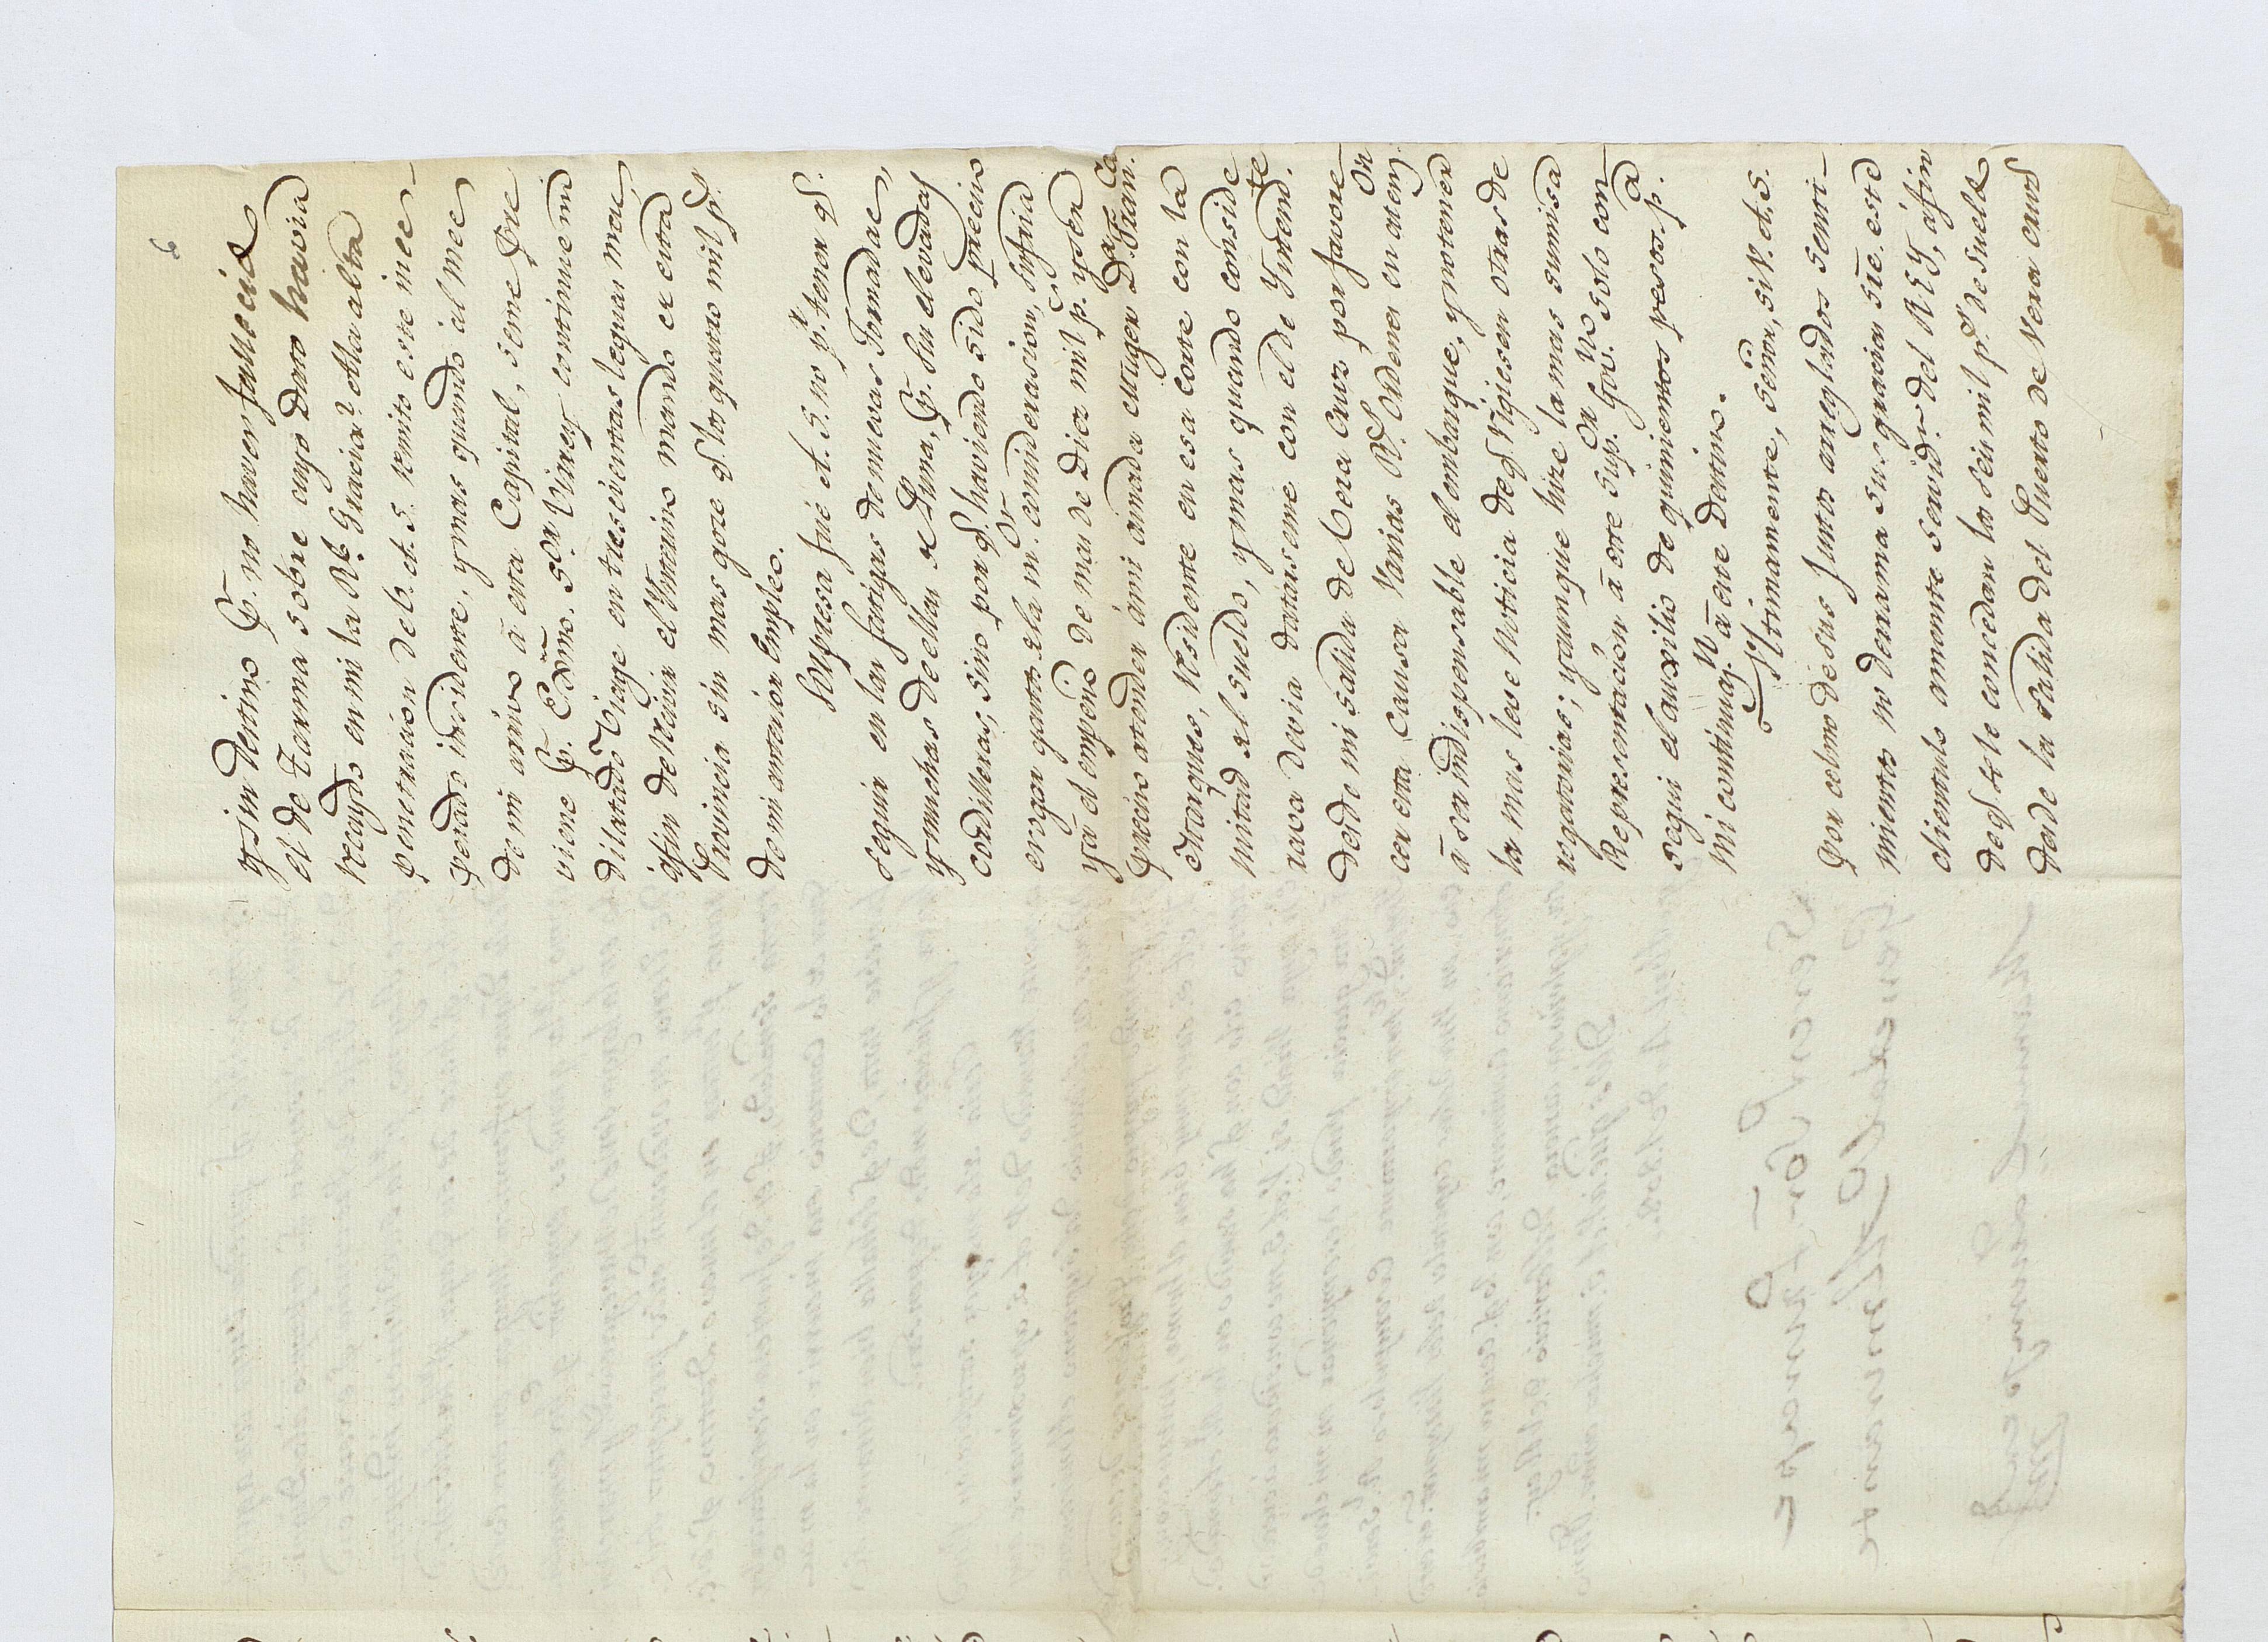 y sin Destino q.e no haver fallecido
el de Tarma sobre cuyo Dato havria
recaydo en mi la R.l Gracia? Ala alta
penetracion de V. A. S. remito este ines-
perado incidente, y mas quando al mes
de mi arrivo à esta Capital, seme pre
viene q.e Exmo. S.or Virrey continue mi
dilatado Viage en trescientas leguas mas,
afin de servir el Ynterino mando de esta
Provincia sin mas goze q.e los quatro mil p.s
de mi anterior Empleo.
Sorpresa fué A. S. no p.r tener q.e
seguir en las fatigas de nuevas Jornadas,
y muchas de ellas de Puna, q.e sus elevadas
cordilleras, sino por q.e haviendo sido preciso
erogar gastos dela m.or consideracion, sufria
ya el empeño de mas de Diez mil p.s y sera
preciso atender ámi amada Muger D.a Fran.ca
Marques, residente en esa Corte con la
mitad del sueldo, y mas quando conside
rava devia datarseme con el de Yntend.te
desde mi salida de Vera Cruz por favore-
cer esta causa varias R.s Ordenes en aten.on
à ser indispensable el embarque, y no tener
la mas leve Noticia de q.e rigiesen otras de
rogatorias; y aunque hize la mas sumisa
Representacion à este Sup.or Gov.no solo con-
segui el auxilio de quinientos pesos p.a
mi continuaz.n à este Destino.
Ultimamente, señor, si V. A. S.
por colmo de sus Justos arreglados senti-
mientos no derrama sus gracias sre. este
cliente amante servid.r del REY, afin
de q.e se le concedan los seis mil p.s de sueldo
desde la salida del Puerto de Vera Cruz